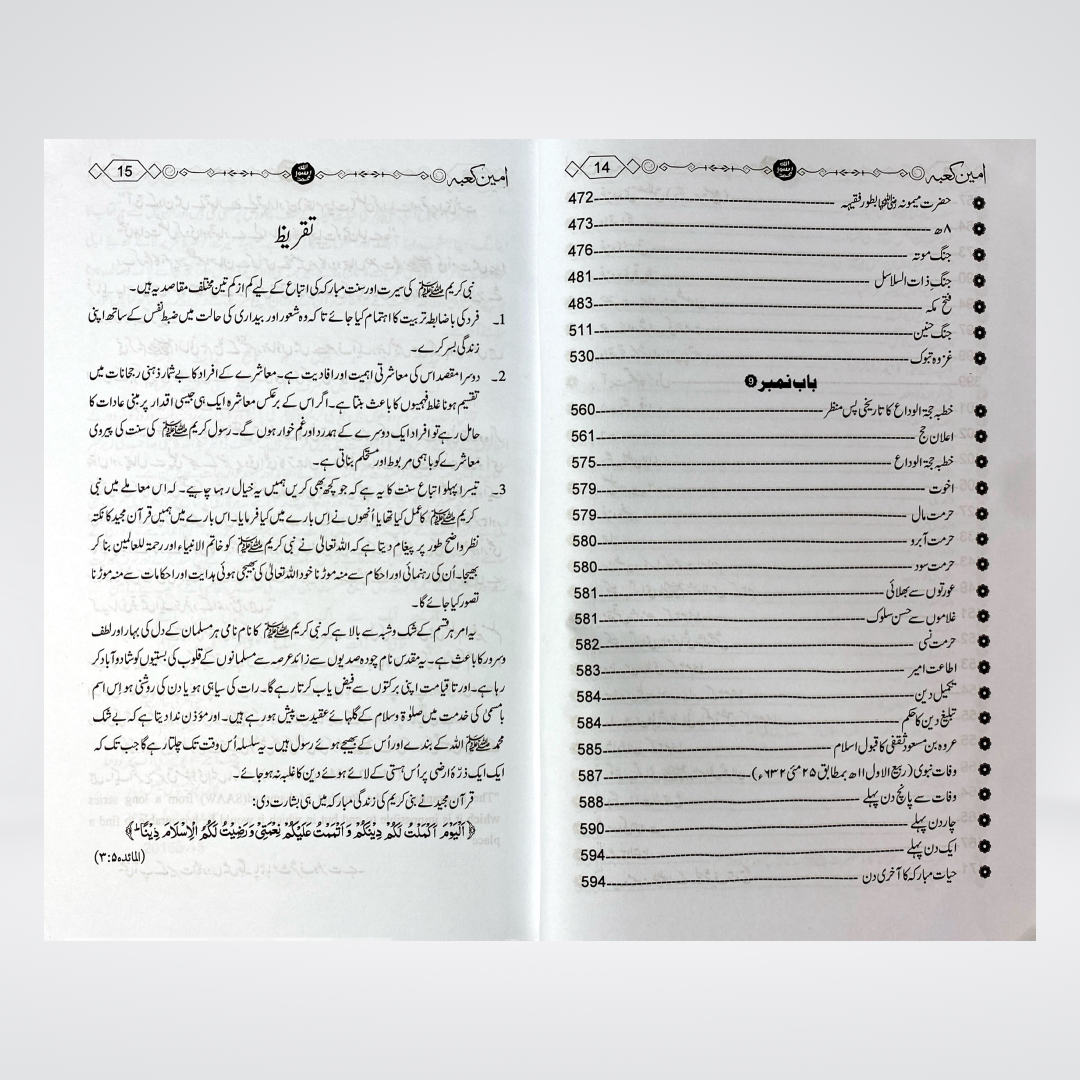 امین کعبہ 14
حضرت میمونہ رضی اللہ عنہا بطور فقیہہ 472
۸ھ 473
جنگ موتہ 476
جنگ ذات السلاسل 481
فتح مکہ 483
جنگ حنین 511
غزوہ تبوک 530
باب نمبر 9
خطبہ حجۃ الوداع کا تاریخی پس منظر 560
اعلان حج 561
خطبہ حجۃ الوداع 575
اخوت 579
حرمت مال 579
حرمت آبرو 580
حرمت سود 580
عورتوں سے بھلائی 581
غلاموں سے حسن سلوک 581
حرمت نسی 582
اطاعت امیر 583
تکمیل دین 584
تبلیغ دین کا حکم 584
عروہ بن مسعود ثقفی کا قبول اسلام 585
وفات نبوی (ربیع الاول ۱۱ھ بمطابق ۲۵ مئی ۶۳۲ء) 587
وفات سے پانچ دن پہلے 588
چار دن پہلے 590
ایک دن پہلے 594
حیات مبارکہ کا آخری دن 594
امین کعبہ 15
تقریظ
نبی کریم ﷺ کی سیرت اور سنت مبارکہ کی اتباع کے لیے کم از کم تین مختلف مقاصد یہ ہیں۔
1۔ فرد کی باضابطہ تربیت کا اہتمام کیا جائے تاکہ وہ شعور اور بیداری کی حالت میں ضبط نفس کے ساتھ اپنی
زندگی بسر کرے۔
2۔ دوسرا مقصد اس کی معاشرتی اہمیت اور افادیت ہے۔ معاشرے کے افراد کا بے شمار ذہنی رجحانات میں
تقسیم ہونا غلط فہمیوں کا باعث بنتا ہے۔ اگر اس کے برعکس معاشرہ ایک ہی جیسی اقدار پر مبنی عادات کا
حامل رہے تو افراد ایک دوسرے کے ہمدرد اور غم خوار ہوں گے۔ رسول کریم ﷺ کی سنت کی پیروی
معاشرے کو باہمی مربوط اور مستحکم بناتی ہے۔
3۔ تیسرا پہلو اتباع سنت کا یہ ہے کہ جو کچھ بھی کریں ہمیں یہ خیال رہنا چاہیے۔ کہ اس معاملے میں نبی
کریم ﷺ کا عمل کیا تھا یا اُنھوں نے اِس بارے میں کیا فرمایا۔ اس بارے میں ہمیں قرآن مجید کا نکتہ
نظر واضح طور پر پیغام دیتا ہے کہ اللہ تعالیٰ نے نبی کریم ﷺ کو خاتم الانبیاء اور رحمۃ للعالمین بنا کر
بھیجا۔ اُن کی رہنمائی اور احکام سے منہ موڑنا خود اللہ تعالیٰ کی بھیجی ہوئی ہدایت اور احکامات سے منہ موڑنا
تصور کیا جائے گا۔
یہ امر ہر قسم کے شک و شبہ سے بالا ہے کہ نبی کریم ﷺ کا نام نامی ہر مسلمان کے دل کی بہار اور لطف
و سرور کا باعث ہے۔ یہ مقدس نام چودہ صدیوں سے زائد عرصہ سے مسلمانوں کے قلوب کی بستیوں کو شاد و آباد کر
رہا ہے۔ اور تا قیامت اپنی برکتوں سے فیض یاب کرتا رہے گا۔ رات کی سیاہی ہو یا دن کی روشنی ہو اِس اسم
بامسمیٰ کی خدمت میں صلوٰۃ و سلام کے گلہائے عقیدت پیش ہو رہے ہیں۔ اور مؤذن ندا دیتا ہے کہ بے شک
محمد ﷺ اللہ کے بندے اور اُس کے بھیجے ہوئے رسول ہیں۔ یہ سلسلہ اُس وقت تک چلتا رہے گا جب تک کہ
ایک ایک ذرّۂ ارضی پر اُس ہستی کے لائے ہوئے دین کا غلبہ نہ ہو جائے۔
قرآن مجید نے نبی کریم کی زندگی مبارکہ میں ہی بشارت دی:
﴿اَلْيَوْمَ اَكْمَلْتُ لَكُمْ دِيْنَكُمْ وَ اَتْمَمْتُ عَلَيْكُمْ نِعْمَتِيْ وَ رَضِيْتُ لَكُمُ الْاِسْلَامَ دِيْنًا ط﴾
(المائدہ ۵:۳)